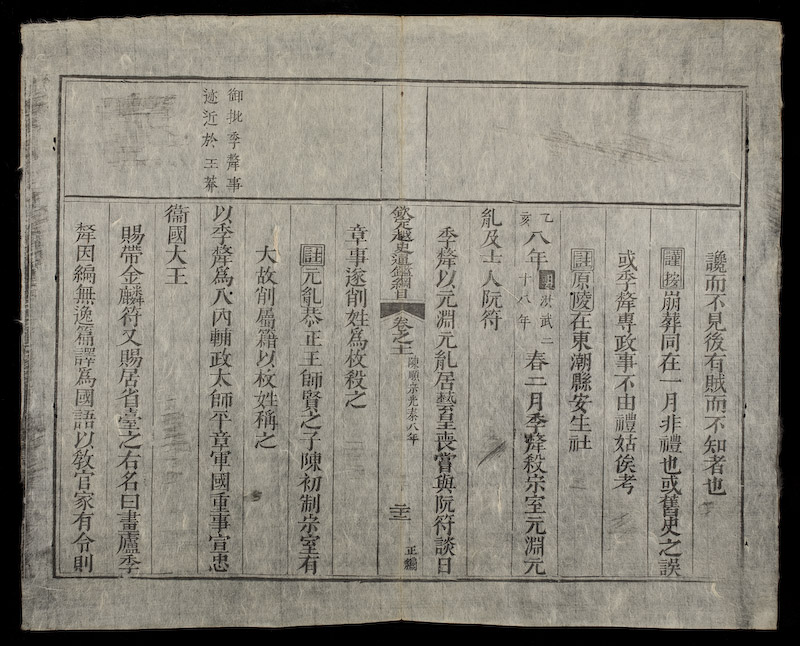 讒而不見後有賊而不知者也
謹按崩葬同在一月非禮也或舊史之誤
或季犛專政事不由禮姑俟考
註原陵在東潮縣安生社
乙亥八年明洪武二十八年春二月季犛殺宗室元淵元
乿及士人阮符
季犛以元淵元乿居藝皇喪嘗與阮符談日
欽定越史通鑑綱目 卷之十一 陳順宗光泰八年 正編
章事遂削姓爲枚殺之
註元乿恭正王師賢之子陳初制宗室有
大故削屬籍以枚姓稱之
以季犛爲入內輔政太師平章軍國重事宣忠
衞國大王
賜帶金麟符又賜居省臺之右名曰畫廬季
犛因編無逸篇譯爲國語以教官家有令則
御批季犛事
迹近於王莽